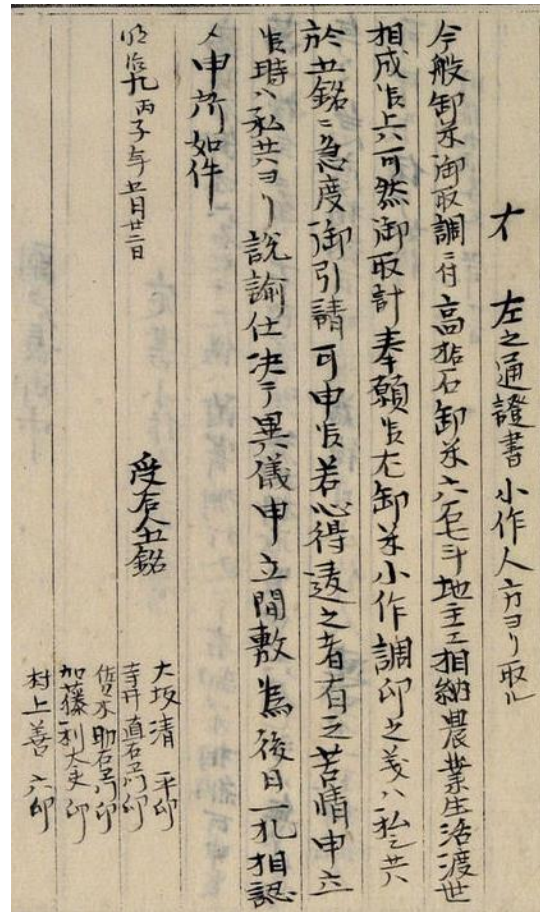 才 左之通證書小作人方ヨリ取ル
今般卸米御取調ニ付高拾石卸米六石七斗地主エ相納農業生活渡世
相成候上ハ可然御取計奉願候尤卸米小作調印之義ハ私共
於五銘ニ急度御引請可申候若心得違之者有之苦情申立
候時ハ私共ヨリ説諭仕决テ異儀申立間敷為後日一札相認
申所如件
明治九丙子年五月廿二日
受人五銘
大坂清平印
寺井直右衛門印
佐々木助右衛門印
加藤利太夫印
村上善六印